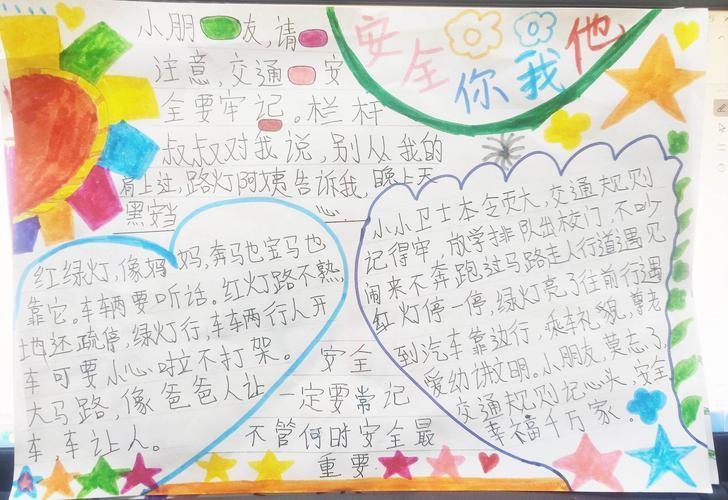 安全你我他
小朋友,请
注意,交通安
全要牢记。栏杆
叔叔对我说,别从我的
肩上过,路灯阿姨告诉我,晚上天
黑要当心
红绿灯,像妈妈,奔马也宝马也
靠它。车车辆要听话。红灯路不熟,
地还疏停,绿灯行,车车两行人开
车可要小心啦不打架。
大马路,像爸爸人让
车,车让人。
小小卫士本令页大,交通规则
记得牢,放学排队出校门,不吵
闹来不奔跑,过马路走人行道遇见
红灯停一停,绿灯亮了往前行遇
到汽车靠边行,乘车礼貌,尊老
爱幼讲文明。小朋友,莫忘了,
交通规则记心头,安全
幸福千万家。
安全
一定要常记
不管何时安全最
重要